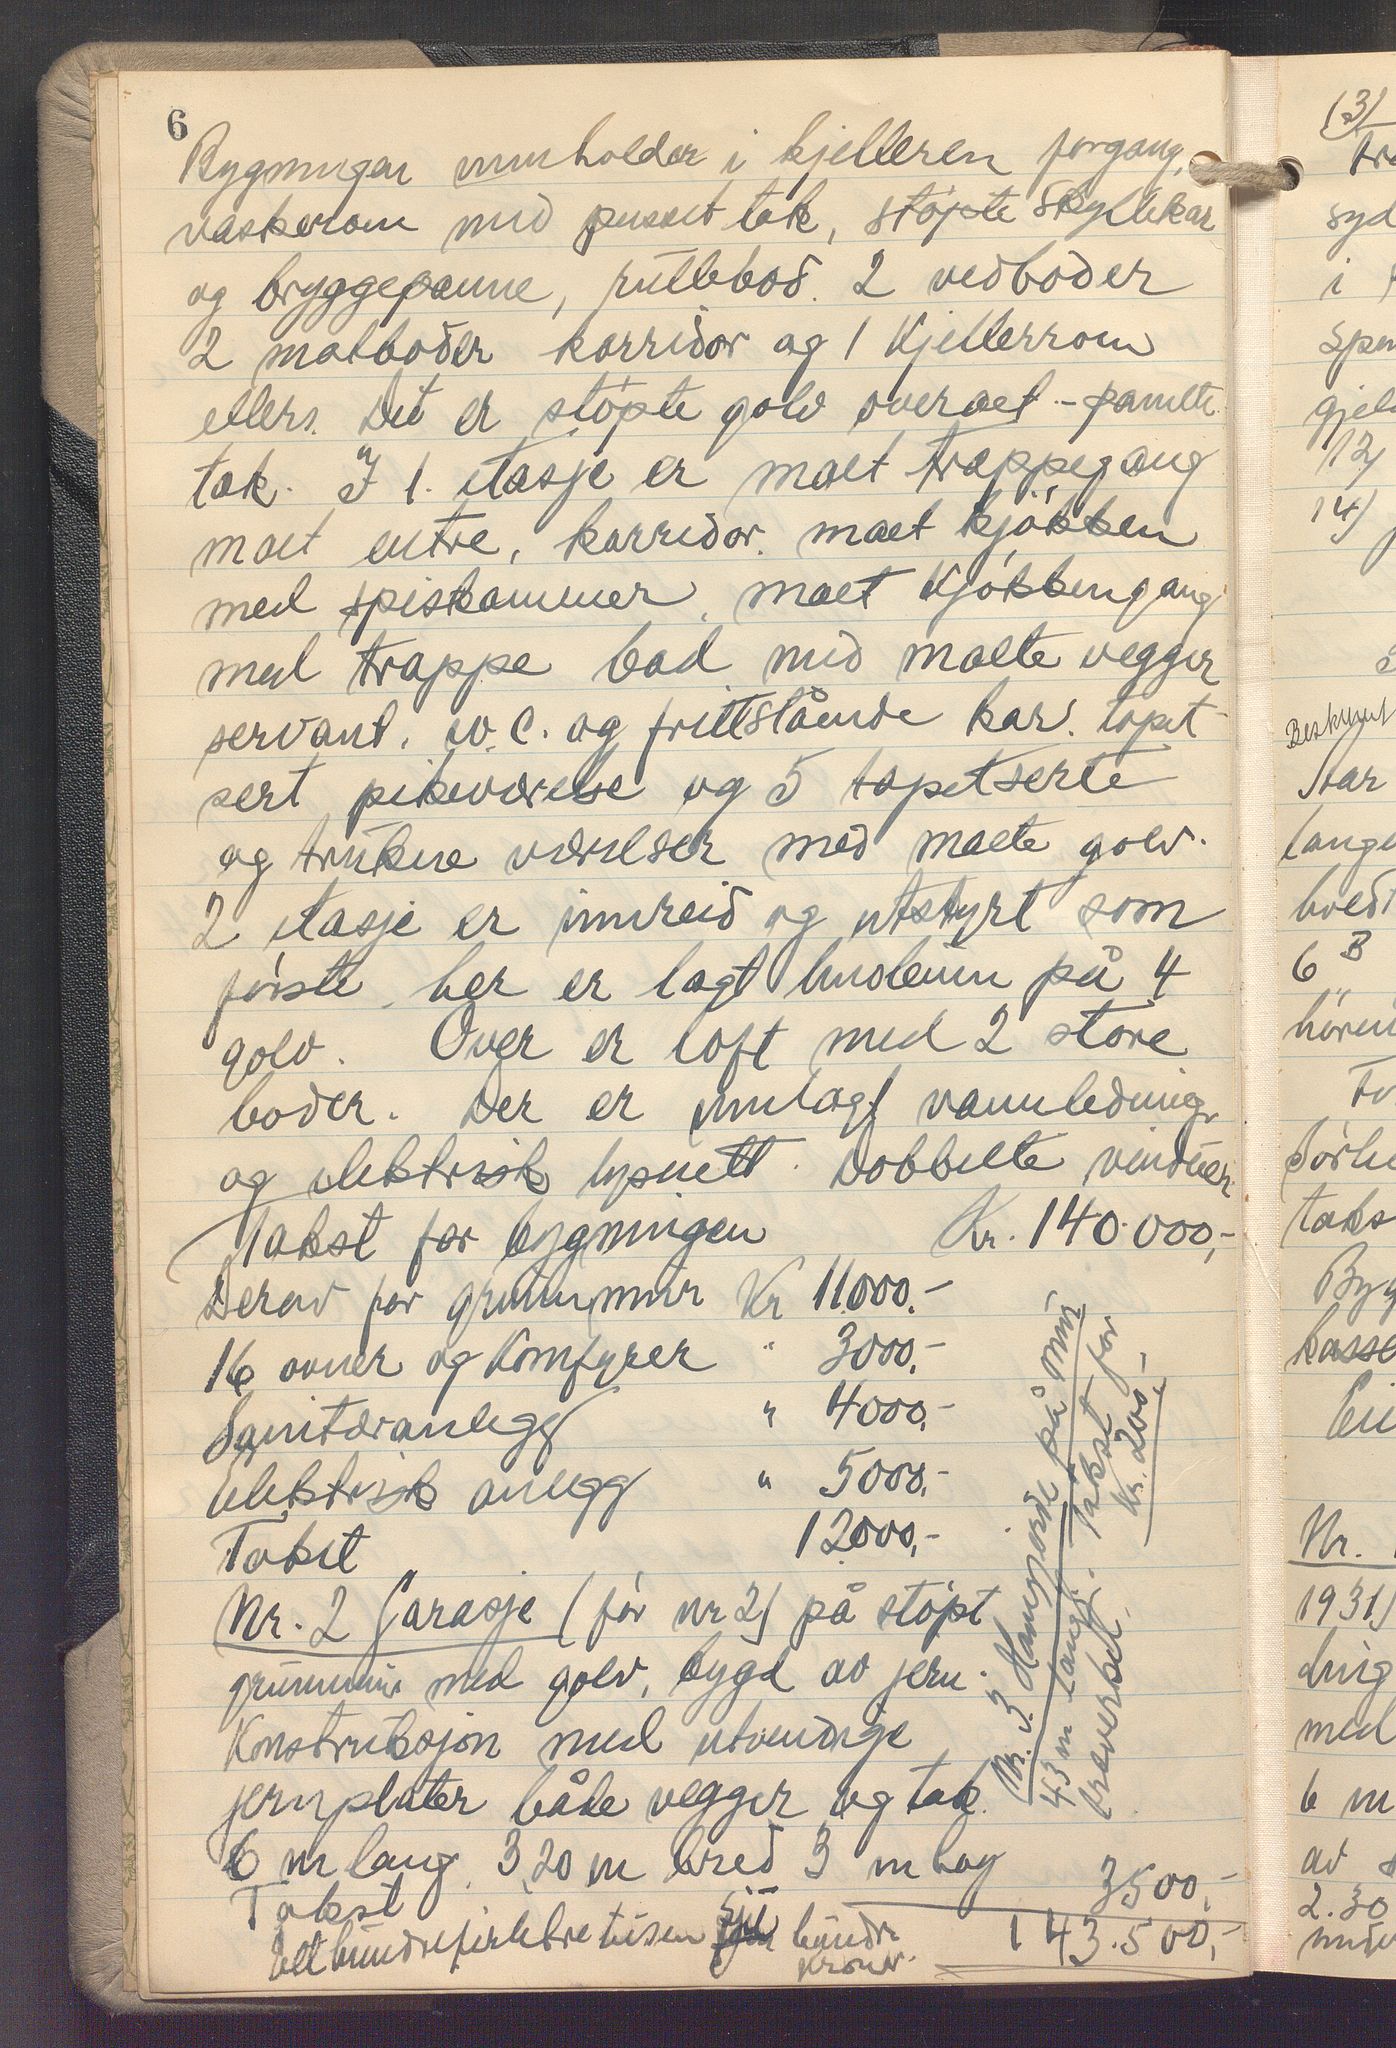 6
Bygningen innholder i kjelleren forgang,
vaskerom med pusset tak, støpte skyllekar
og bryggepanne, rullebod. 2 vedboder
2 matboder korridor og 1 kjellerrom
ellers. Det er støpte golv overalt - panelte
tak. I 1. etasje er malt trappegang
malt entre, korridor, malt kjøkken
med spiskammer, malt kjøkkengang
med trappe bad med malte vegger
servant, w.c. og frittstående kar. tapet
sert pikeværelse og 5 tapetserte
og trukne værelser med malte golv.
2 etasje er innreid og utstyrt som
første, her er lagt linoleum på 4
golv. Over er loft med 2 store
boder. Der er innlagt vannledning
og elektrisk lysnett. Dobbelte vinduer
Takst for bygningen Kr. 140.000,-
Derav for grunnmur Kr 11.000.-
16 ovner og komfyrer " 3000,-
Sanitæranlegg " 4000,-
Elektrisk anlegg " 5000,-
Takst 12000,-
Nr. 2 Garasje (før nr 2) på støpt
grunnmur med golv, bygd av jern
konstruksjon med utvendige
jernplater både vegger og tak.
6 m lang 3,20 m bred 3 m høy
Takst 3500,-
Ett hundreførtitre tusen fem hundre 143.500,-
kroner.
Nr. 3. Hagegjerde på mur
43 m langt. Takst for
treverket. Kr. 200,-
(3)
syd
i
gjel
12)
14)
var
lange
bredt
6 B
taks
Byg
kasse
Nr.
1931)
med
6 m
av
2.30